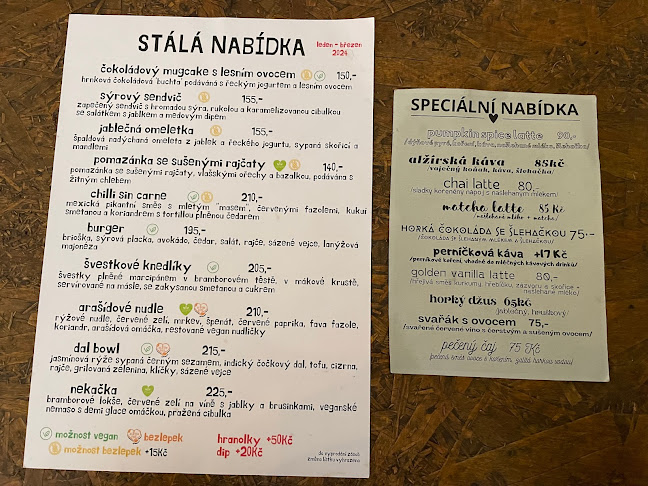 STÁLÁ NABÍDKA
leden - březen
2024
čokoládový mugcake s lesním ovocem 150,-
hrnková čokoládová "buchta" podáváná s řeckým jogurtem a lesním ovocem
sýrový sendvič 155,-
zapečený sendvič s hromadou sýru, rukolou a karamelizovanou cibulkou
se salátkem s jablkem a medovým dipem
jablečná omeletka 155,-
špaldová nadýchaná omeleta z jablek a řeckého jogurtu, sypaná skořicí a
mandlemi
pomazánka se sušenými rajčaty 140,-
pomazánka se sušenými rajčaty, vlašskými ořechy a bazalkou, podávána s
žitným chlebem
chilli sin carne 210,-
mexická pikantní směs s mletým "masem", červenými fazolemi, kukuř
smetanou a koriandrem s tortillou plněnou čedarem
burger 195,-
brioška, sýrová placka, avokádo, čedar, salát, rajče, sázené vejce, lanýžová
majonéza
švestkové knedlíky 205,-
švestky plněné marcipánem v bramborovém těstě, v mákové krustě,
servírované na másle, se zakysanou smetanou a cukrem
arašídové nudle 210,-
rýžové nudle, červené zelí, mrkev, špenát, červené paprika, fava fazole,
koriandr, arašídová omáčka, restované vegan nudličky
dal bowl 215,-
jasmínová rýže sypaná černým sezamem, indický čočkový dal, tofu, cizrna,
rajče, grilovaná zelenina, klíčky, sázené vejce
nekačka 225,-
bramborové lokše, červené zelí na víně s jablky a brusinkami, veganské
nemaso s demi glace omáčkou, pražená cibulka
možnost vegan bezlepek hranolky +50Kč
možnost bezlepek +15Kč dip +20Kč
do vyprodání zásob
SPECIÁLNÍ NABÍDKA
pumpkin spice latte 90,-
alžírská káva 85kč
/vaječný koňak, káva, šlehačka/
chai latte 80,-
/sladký kořeněný nápoj s našlehaným mlékem/
matcha latte 85 Kč
/našlehané mléko + matcha/
HORKÁ ČOKOLÁDA SE ŠLEHAČKOU 75,-
/ČOKOLÁDA SE ŠLEHANÝM MLÉKEM A ŠLEHAČKOU/
perníčková káva +17 Kč
/perníkové koření, vhodné do mléčných kávových drinků/
golden vanilla latte 80,-
/hřejivá směs kurkumy, hřebíčku, zázvoru a skořice +
našlehané mléko/
horký džus 65kč
/jablečný, hruškový/
svařák s ovocem 75,-
/svařené červené víno s čerstvým a sušeným ovocem/
pečený čaj 75 Kč